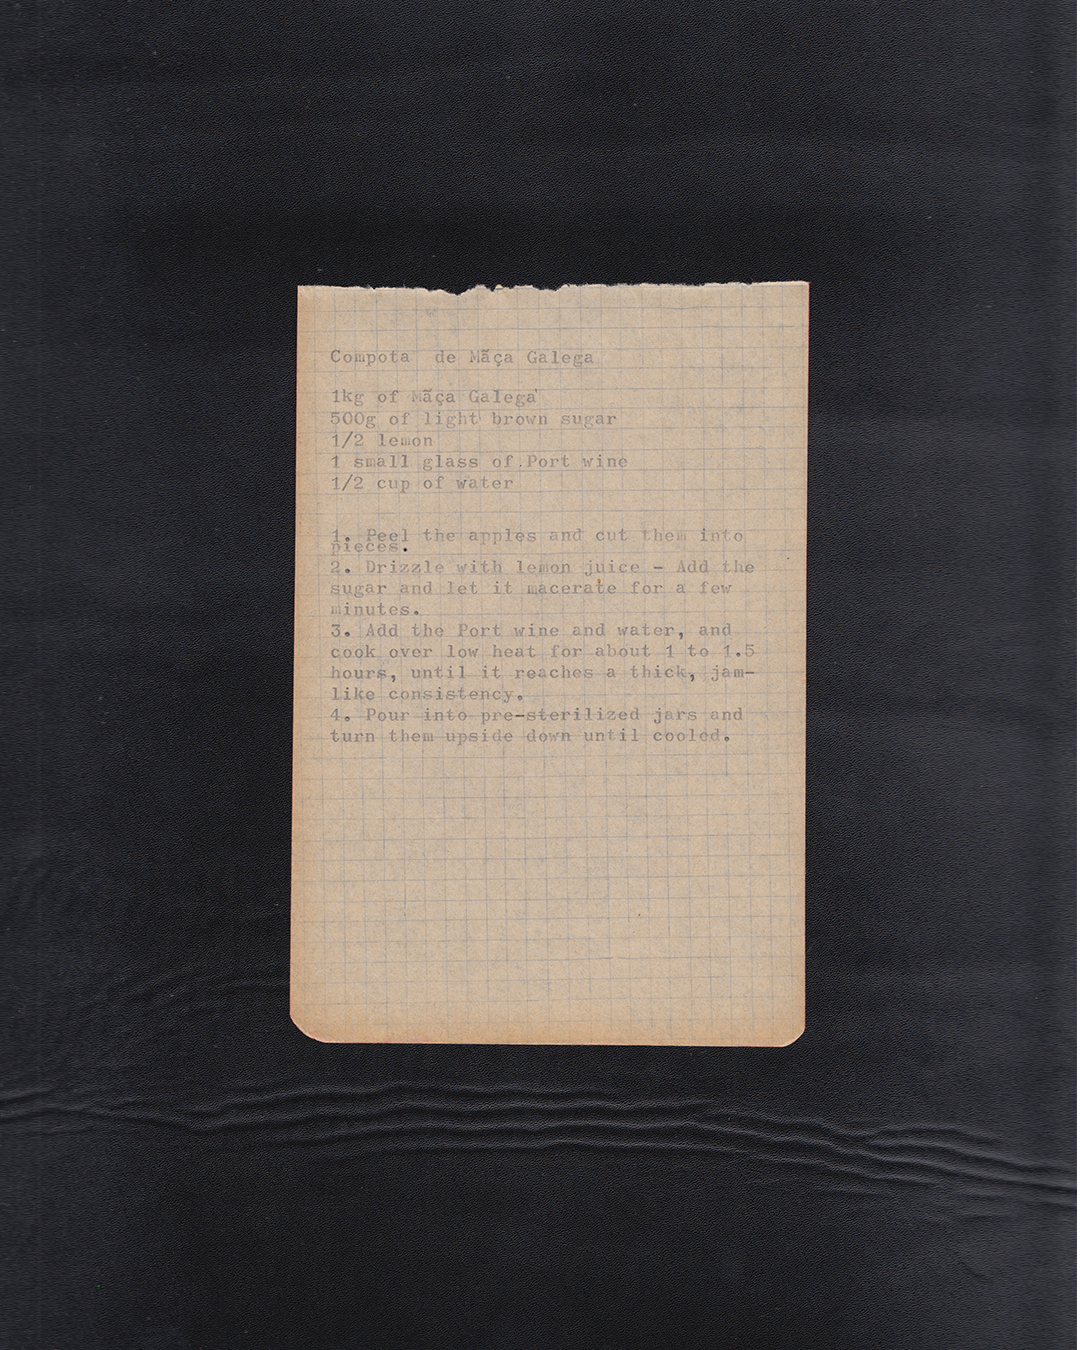 Compota de Mãça Galega
1kg of Mãça Galega
500g of light brown sugar
1/2 lemon
1 small glass of Port wine
1/2 cup of water
1. Peel the apples and cut them into
pieces.
2. Drizzle with lemon juice - Add the
sugar and let it macerate for a few
minutes.
3. Add the Port wine and water, and
cook over low heat for about 1 to 1.5
hours, until it reaches a thick, jam-
like consistency.
4. Pour into pre-sterilized jars and
turn them upside down until cooled.